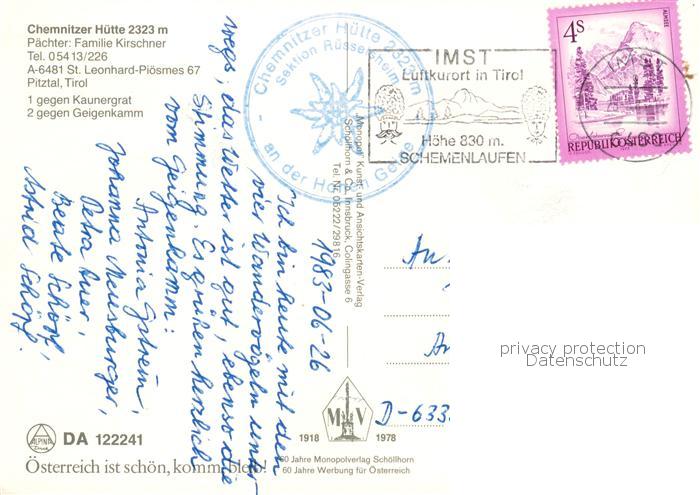 Chemnitzer Hütte 2323 m
Pächter: Familie Kirschner
Tel. 05413/226
A-6481 St. Leonhard-Piösmes 67
Pitztal, Tirol
1 gegen Kaunergrat
2 gegen Geigenkamm
Chemnitzer Hütte 2323 m
Sektion Rüsselsheim
an der Hohen Geige
IMST
Luftkurort in Tirol
Höhe 830 m.
SCHEMENLAUFEN
4S
ALMSEE
REPUBLIK ÖSTERREICH
1983-06-26
Ich bin heute mit den
vier Wandervögeln unter-
wegs, das Wetter ist gut, ebenso die
Stimmung. Es grüßen herzlich
vom Geigenkamm:
Antonia Gstrein,
Johanna Neusburger,
Petra Auer,
Beate Schöpf,
Astrid Schöpf.
Monopol Kunst- und Ansichtskarten-Verlag
Schöllhorn & Co., Innsbruck, Colingasse 6
Tel. Nr. 05222/29816
An
D-633
privacy protection
Datenschutz
M V
1918 1978
60 Jahre Monopolverlag Schöllhorn
60 Jahre Werbung für Österreich
ALPINA
DA 122241
Österreich ist schön, komm bleib!